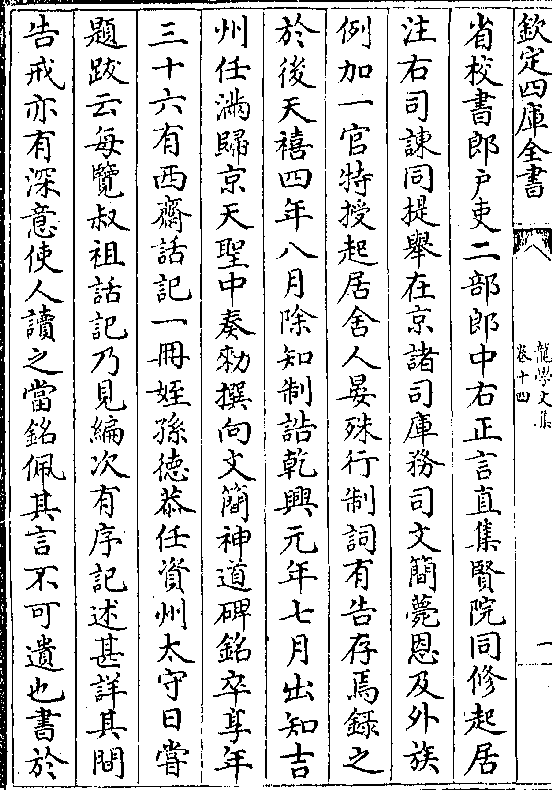 欽定四庫全書
龍學文集
卷十四
一
省校書郎戸吏二部郎中右正言直集賢院同修起居
注右司諫同提舉在京諸司庫務司文簡薨恩及外族
例加一官特授起居舍人晏殊行制詞有告存焉録之
於後天禧四年八月除知制誥乾興元年七月出知吉
州任滿歸京天聖中奏勑撰向文簡神道碑銘卒享年
三十六有西齋話記一冊姪孫德恭任資州太守日嘗
題跋云每覽叔祖話記乃見編次有序記述甚詳其間
告戒亦有深意使人讀之當銘佩其言不可遺也書於